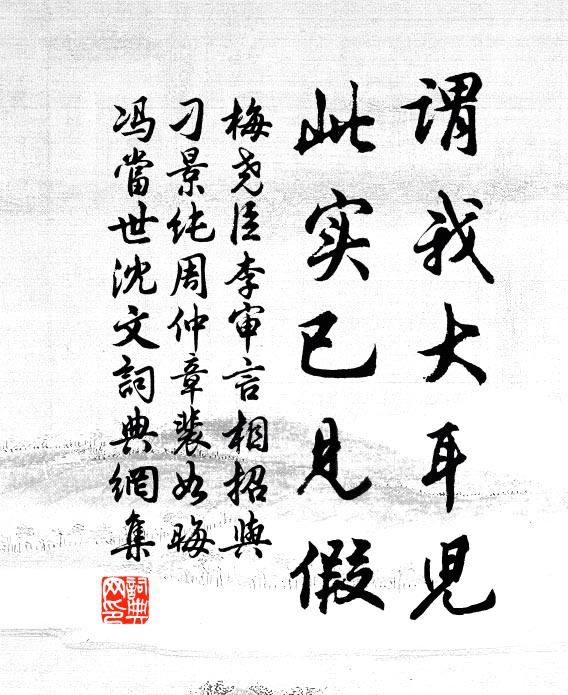 谓我大耳児
此实已见假
梅尧臣李审言相招与
刁景纯周仲章裴如晦
冯當世沈文詞典網集
詞典
网印